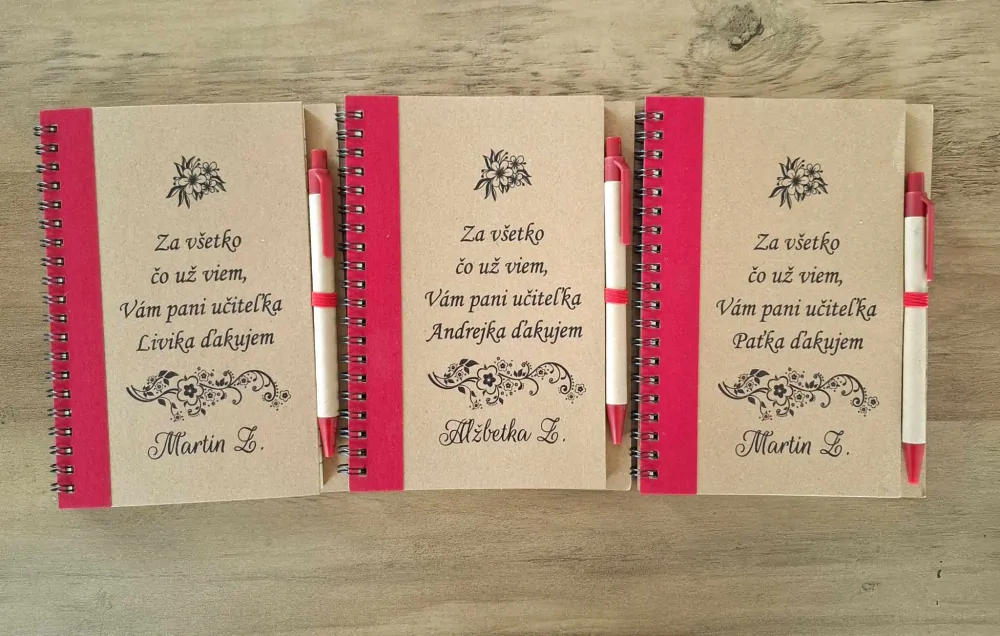 Za všetko
čo už viem,
Vám pani učiteľka
Livika ďakujem
Martin Z.
Za všetko
čo už viem,
Vám pani učiteľka
Andrejka ďakujem
Alžbetka Z.
Za všetko
čo už viem,
Vám pani učiteľka
Paťka ďakujem
Martin Z.